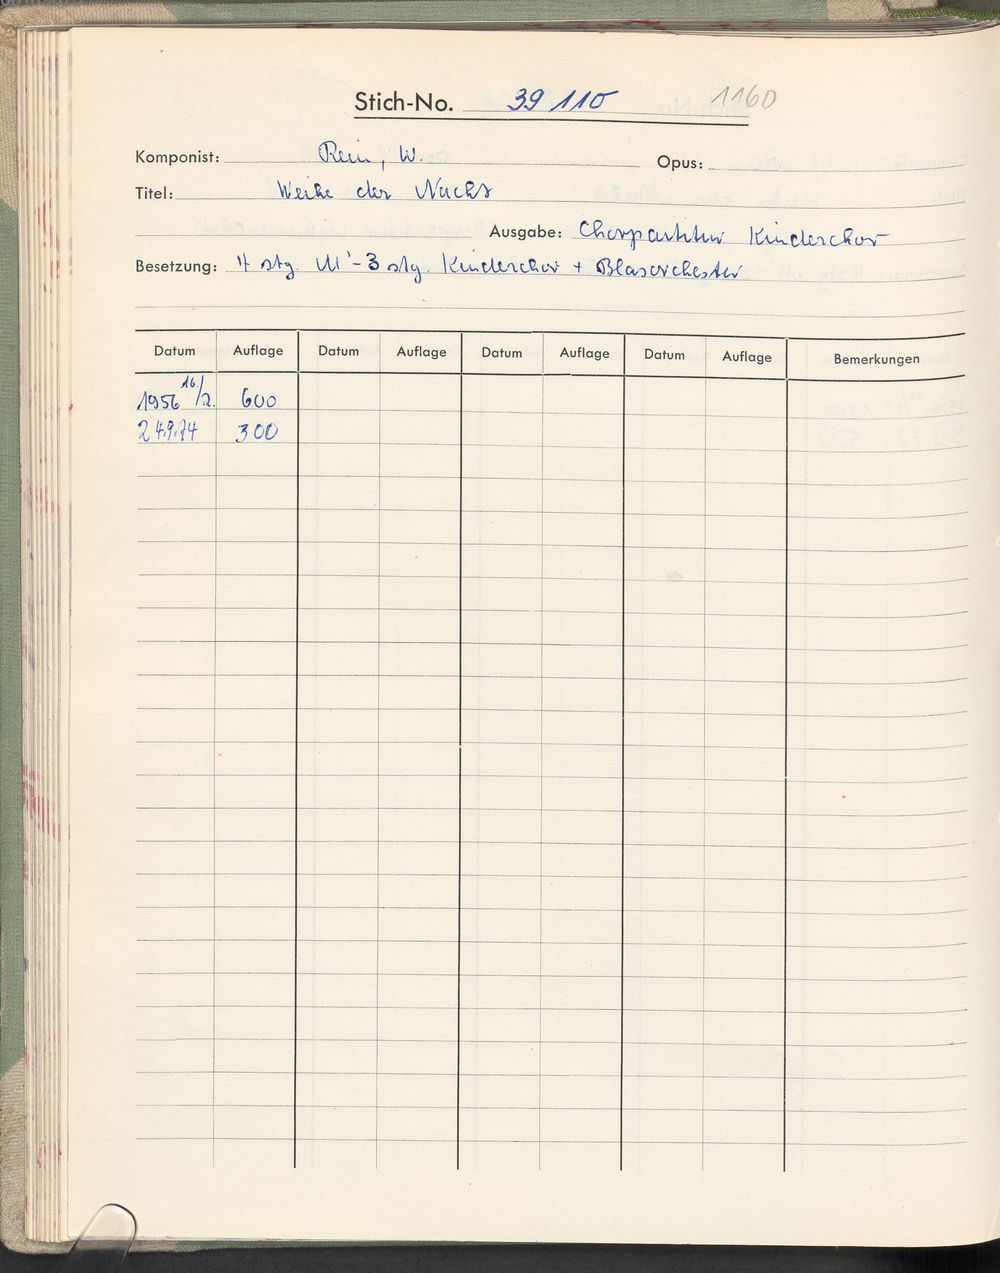 Stich-No. 39 110 1160
Komponist: Rein, W. Opus:
Titel: Weihe der Nacht
Ausgabe: Chorpartitur Kinderchor
Besetzung: 4 stg. M'-3 stg. Kinderchor + Blasorchester
Datum Auflage Datum Auflage Datum Auflage Datum Auflage Bemerkungen
1956 16./2. 600
24.9.74 300